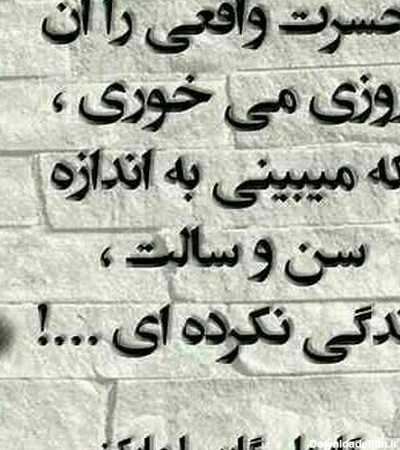 حسرت واقعی را آن
روزی می خوری ،
که میبینی به اندازه
سن و سالت ،
ندگی نکرده ای ...!